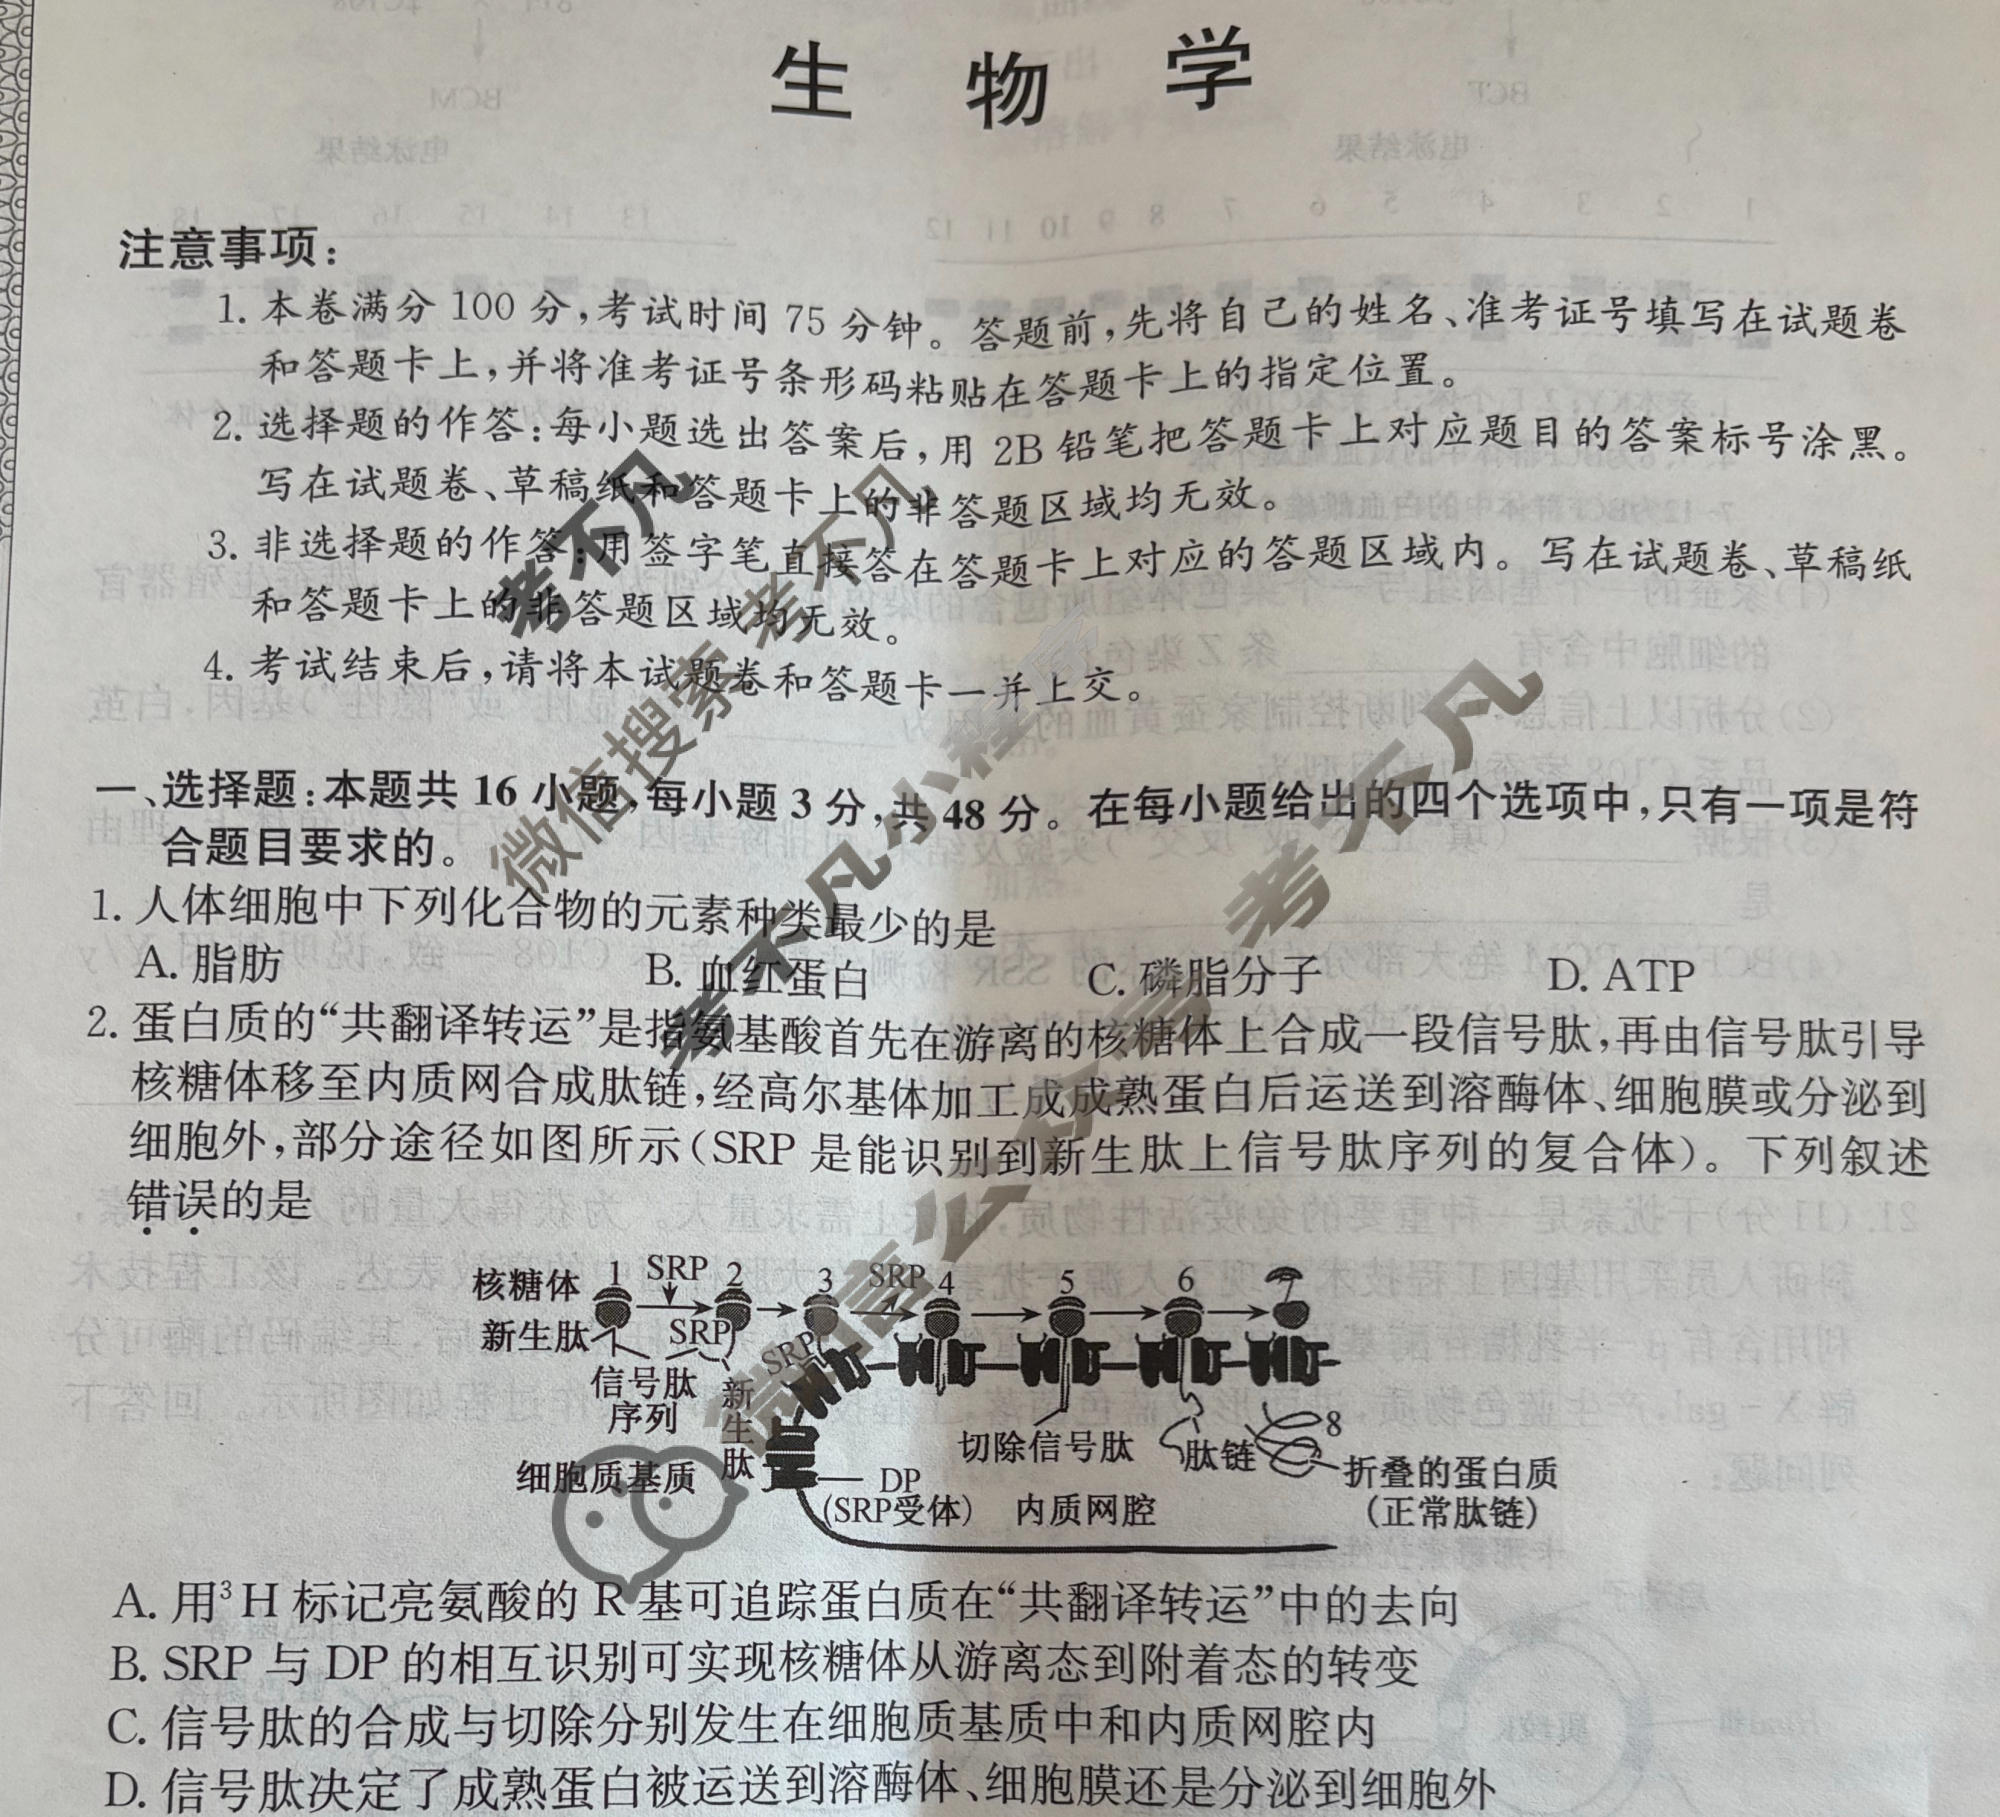 生 物 学
注意事项:
1. 本卷满分 100 分,考试时间 75 分钟。答题前,先将自己的姓名、准考证号填写在试题卷
和答题卡上,并将准考证号条形码粘贴在答题卡上的指定位置。
2. 选择题的作答:每小题选出答案后,用 2B 铅笔把答题卡上对应题目的答案标号涂黑。
写在试题卷、草稿纸和答题卡上的非答题区域均无效。
3. 非选择题的作答:用签字笔直接答在答题卡上对应的答题区域内。写在试题卷、草稿纸
和答题卡上的非答题区域均无效。
4. 考试结束后,请将本试题卷和答题卡一并上交。
一、选择题:本题共 16 小题,每小题 3 分,共 48 分。在每小题给出的四个选项中,只有一项是符
合题目要求的。
1. 人体细胞中下列化合物的元素种类最少的是
A. 脂肪 B. 血红蛋白 C. 磷脂分子 D. ATP
2. 蛋白质的“共翻译转运”是指氨基酸首先在游离的核糖体上合成一段信号肽,再由信号肽引导
核糖体移至内质网合成肽链,经高尔基体加工成成熟蛋白后运送到溶酶体、细胞膜或分泌到
细胞外,部分途径如图所示(SRP 是能识别到新生肽上信号肽序列的复合体)。下列叙述
错误的是
核糖体 1 SRP 2 3 SRP 4 5 6 7
新生肽 SRP SRP
信号肽
序列
新生肽
切除信号肽 肽链 8
折叠的蛋白质
(正常肽链)
细胞质基质 DP
(SRP受体) 内质网腔
A. 用³H 标记亮氨酸的 R 基可追踪蛋白质在“共翻译转运”中的去向
B. SRP 与 DP 的相互识别可实现核糖体从游离态到附着态的转变
C. 信号肽的合成与切除分别发生在细胞质基质中和内质网腔内
D. 信号肽决定了成熟蛋白被运送到溶酶体、细胞膜还是分泌到细胞外
考不凡
微信搜索 考不凡
考不凡小程序
微信公众号 考不凡